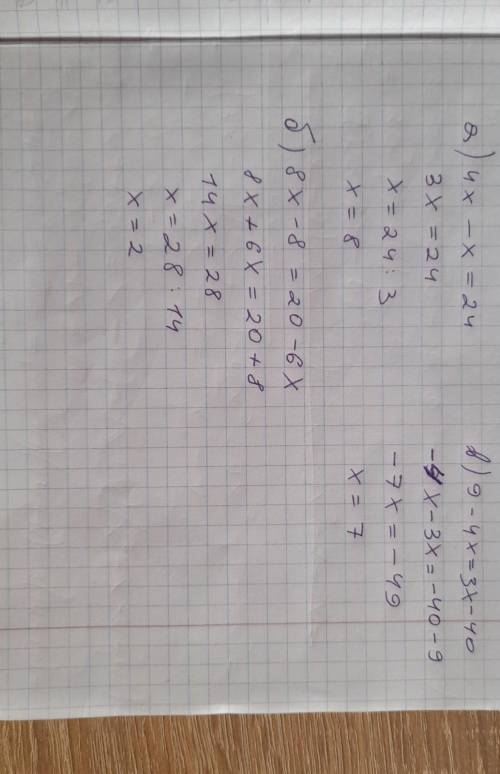 а) 4x - x = 24
3x = 24
x = 24 : 3
x = 8
б) 8x - 8 = 20 - 6x
8x + 6x = 20 + 8
14x = 28
x = 28 : 14
x = 2
в) 9 - 4x = 3x - 40
-4x - 3x = -40 - 9
-7x = -49
x = 7